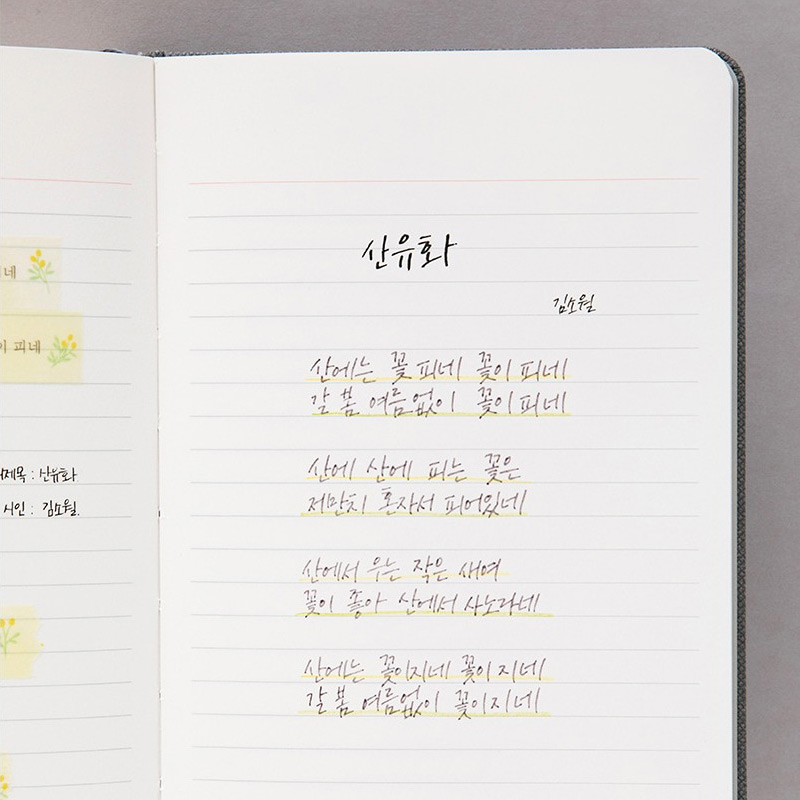 네
이 피네
제목 : 산유화
시인 : 김소월.
산유화
김소월
산에는 꽃 피네 꽃이 피네
갈 봄 여름없이 꽃이 피네
산에 산에 피는 꽃은
저만치 혼자서 피어있네
산에서 우는 작은 새여
꽃이 좋아 산에서 사노라네
산에는 꽃이지네 꽃이 지네
갈 봄 여름없이 꽃이 지네